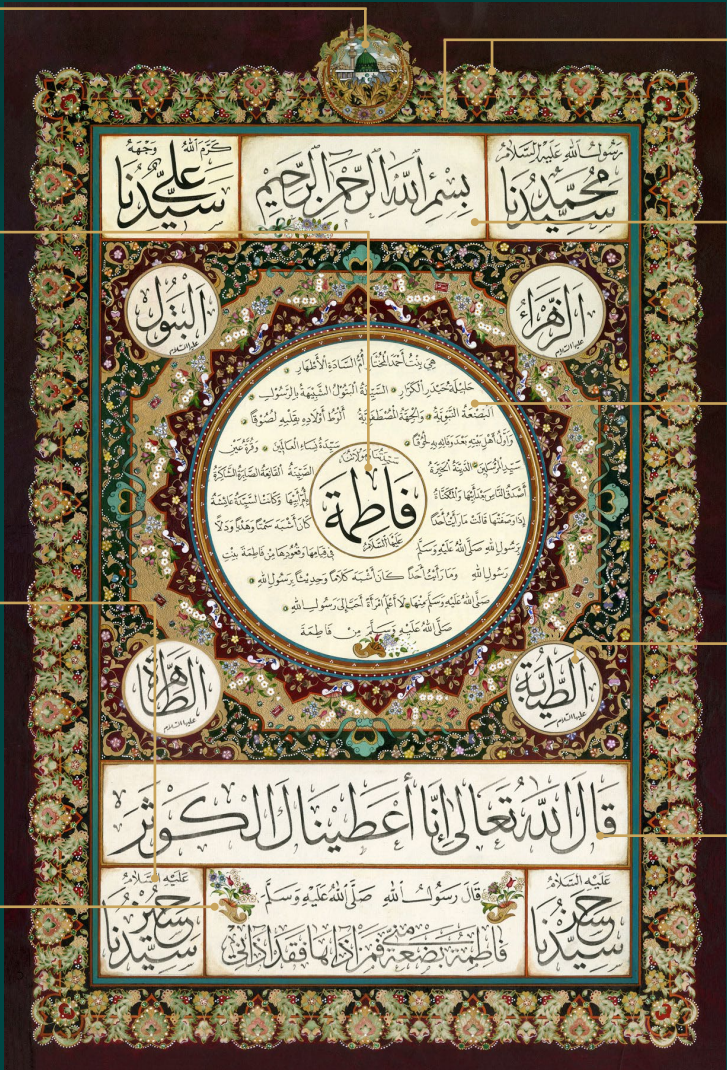 رسول الله عليه السلام
سيدنا محمد
بسم الله الرحمن الرحيم
كرم الله وجهه
سيدنا علي
الزهراء
عليها السلام
البتول
عليها السلام
هي بنت أحمد المختار أم السادة الأطهار
حليلة حيدر الكرار السيدة البتول الشبيهة بالرسول
البضعة النبوية والجهة المصطفوية ألوط أولاده بقلبه لصوقا
وأول أهل بيته بعد وفاته به لحوقا سيدة نساء العالمين وقرة عين
سيد المرسلين الدينة الخيرة الصينة القانعة الصابرة الشاكرة
سيدتنا ومولاتنا
فاطمة
عليها السلام
أصدق الناس بعد أبيها وكانت السيدة عائشة
إذا وصفتها قالت ما رأيت أحدا كان أشبه سمتا وهديا ودلا
برسول الله صلى الله عليه وسلم في قيامها وقعودها من فاطمة بنت
رسول الله وما رأيت أحدا كان أشبه كلاما وحديثا برسول الله
صلى الله عليه وسلم منها ولا أعلم امرأة أحب إلى رسول الله
صلى الله عليه وسلم من فاطمة
الطيبة
عليها السلام
الطاهرة
عليها السلام
قال الله تعالى إنا أعطيناك الكوثر
عليه السلام
سيدنا حسن
قال رسول الله صلى الله عليه وسلم
فاطمة بضعة مني فمن آذاها فقد آذاني
عليه السلام
سيدنا حسين